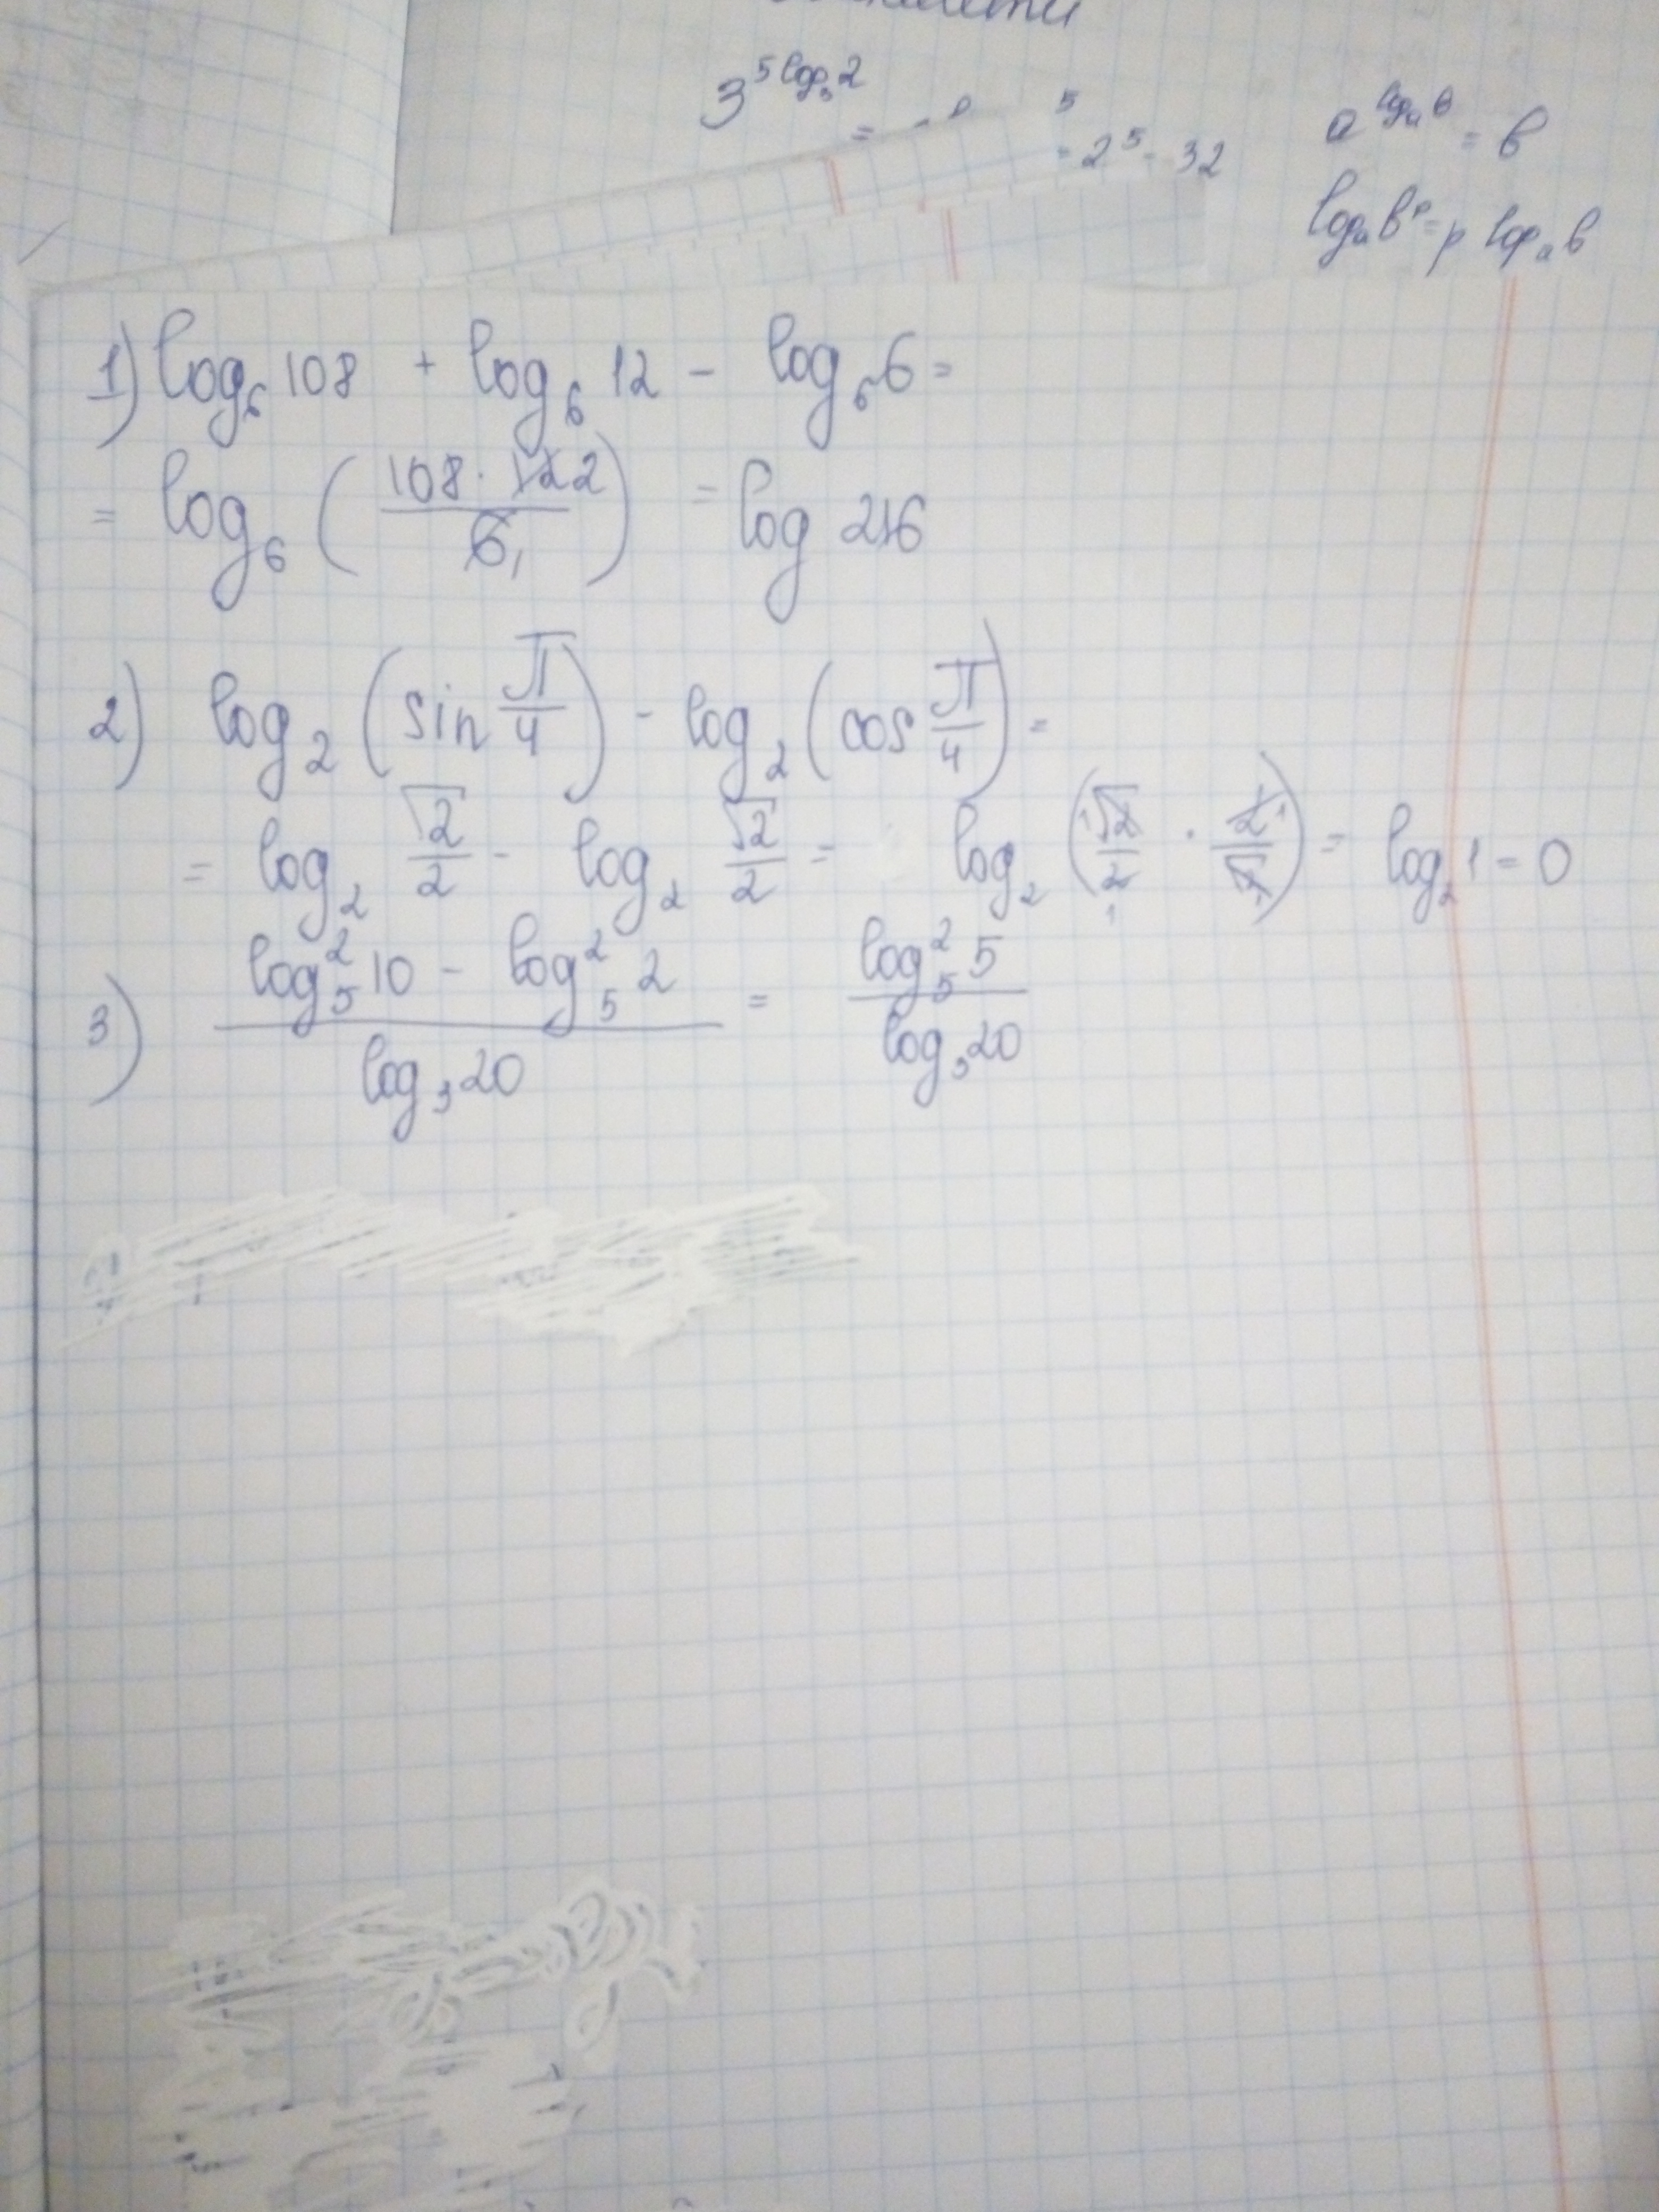 3^(5 log₃ 2) =
5
= 2⁵ = 32
a^(logₐ b) = b
logₐ bᵖ = p logₐ b
1) log₆ 108 + log₆ 12 - log₆ 6 =
= log₆ (108 · 12 2 / 6 1) = log 216
2) log₂ (sin π/4) - log₂ (cos π/4) =
= log₂ √2/2 - log₂ √2/2 = log₂ (√2/2 · 2/√2) = log₂ 1 = 0
3) (log₅² 10 - log₅² 2) / log₅ 20 = log₅² 5 / log₅ 20